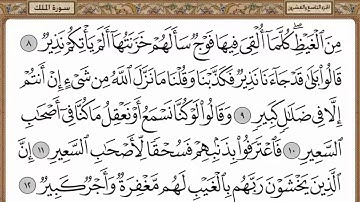 الجزء التاسع والعشرون سورة الملك
مِنَ ٱلْغَيْظِ ۖ كُلَّمَآ أُلْقِىَ فِيهَا فَوْجٌ سَأَلَهُمْ خَزَنَتُهَآ أَلَمْ يَأْتِكُمْ نَذِيرٌ ٨
قَالُوا۟ بَلَىٰ قَدْ جَآءَنَا نَذِيرٌ فَكَذَّبْنَا وَقُلْنَا مَا نَزَّلَ ٱللَّهُ مِن شَىْءٍ إِنْ أَنتُمْ
إِلَّا فِى ضَلَـٰلٍ كَبِيرٍ ٩ وَقَالُوا۟ لَوْ كُنَّا نَسْمَعُ أَوْ نَعْقِلُ مَا كُنَّا فِىٓ أَصْحَـٰبِ
ٱلسَّعِيرِ ١٠ فَٱعْتَرَفُوا۟ بِذَنۢبِهِمْ فَسُحْقًا لِّأَصْحَـٰبِ ٱلسَّعِيرِ ١١ إِنَّ
ٱلَّذِينَ يَخْشَوْنَ رَبَّهُم بِٱلْغَيْبِ لَهُم مَّغْفِرَةٌ وَأَجْرٌ كَبِيرٌ ١٢